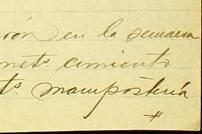 ión en la semana
mets. cimiento
ts. mampostería